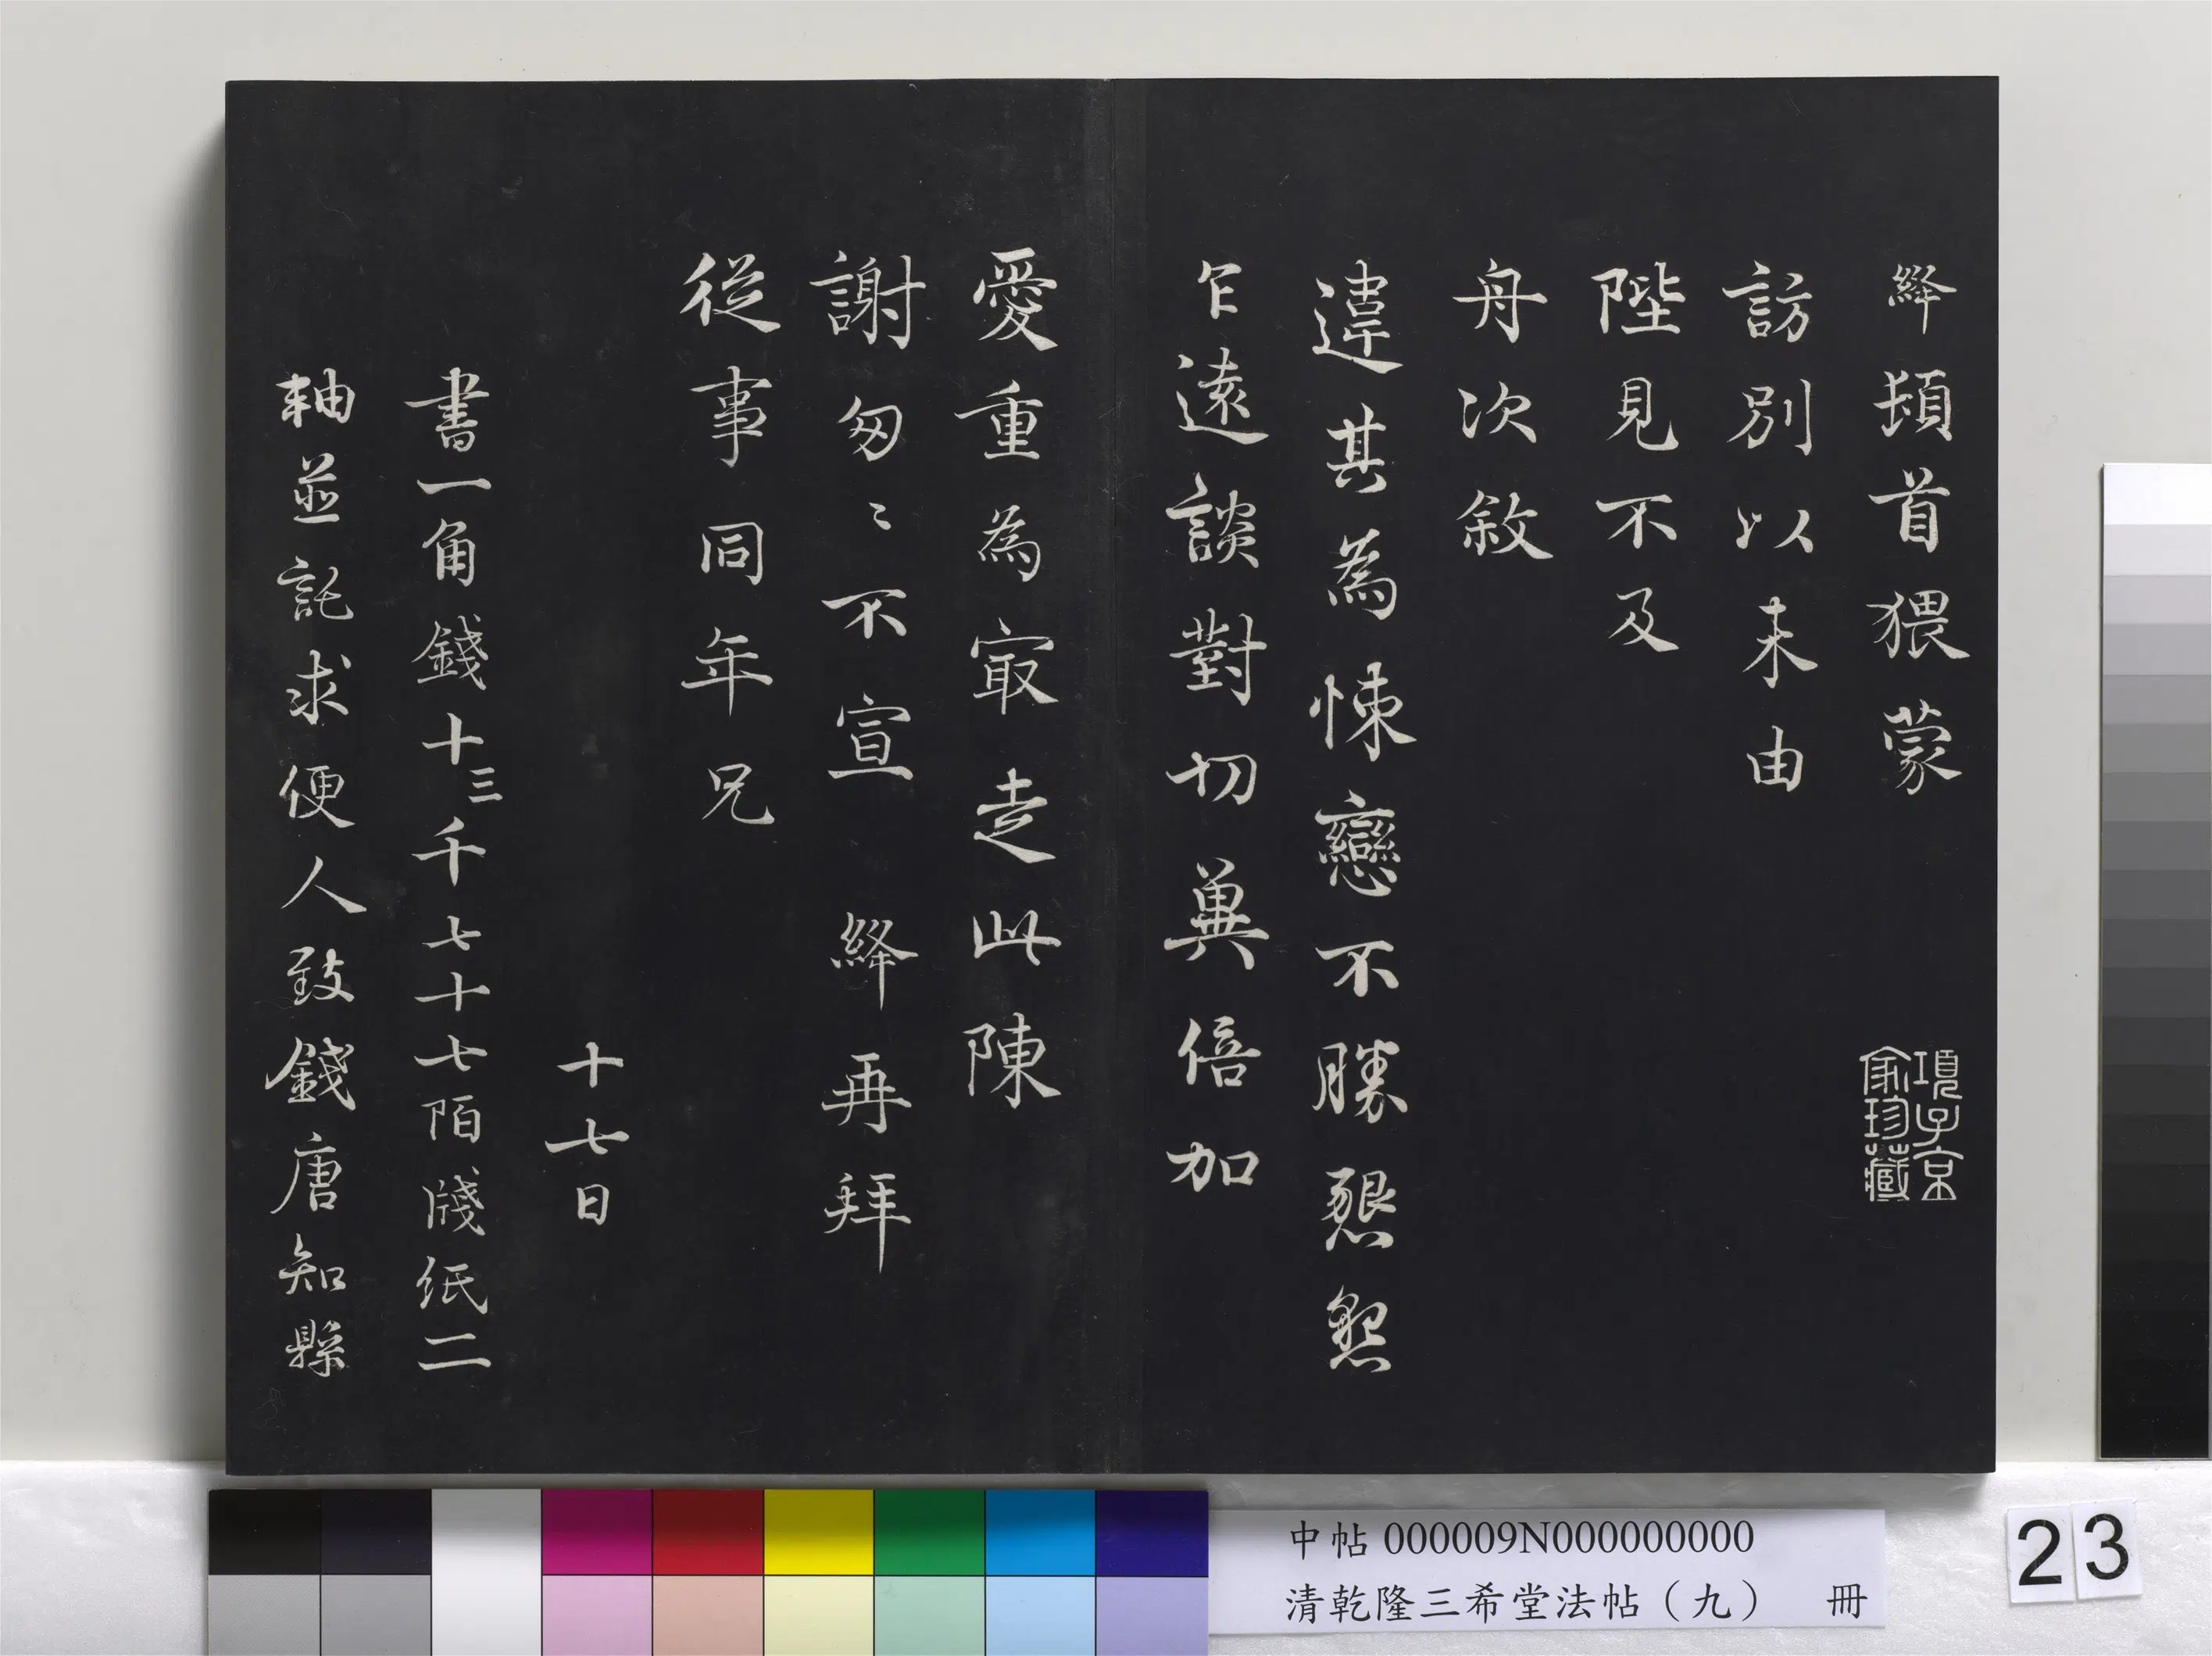 絳頓首猥蒙
訪別以未由
陛見不及
舟次敘
違其為悚戀不勝懇懇
乍遠談對切兾倍加
愛重為㝡走此陳
謝匆〻不宣　絳再拜
從事同年兄
十七日
書一角錢十三千七十七陌牋紙二
軸並託求便人致錢唐知縣
項子京
家珍藏
中帖 000009N000000000
清乾隆三希堂法帖（九）　冊
23